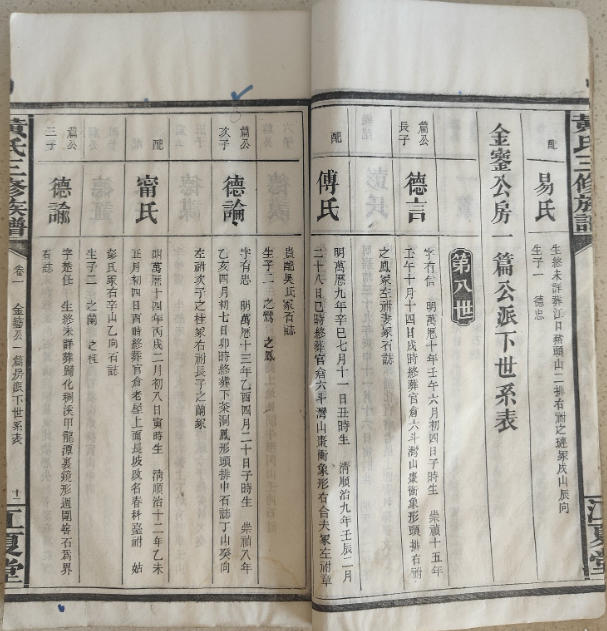 黃氏三修族譜
江夏堂
配
易氏
生終未詳葬江日蔡頭山二排右祔之璉冢戌山辰向
生子一 德忠
金鑾公房一篇公派下世系表
第八世
篇公
長子
德言
字有信 明萬曆十年壬午六月初四日子時生 崇禎十五年
壬午十月十四日戌時終葬官倉六斗灣山棗衡象形頭排右祔
之鳳冢左祔妻冢石誌
配
傅氏
明萬曆九年辛巳七月十一日丑時生 清順治九年壬辰二月
二十八日巳時終葬官倉六斗灣山棗衡象形右台夫冢左祔章
貴醜吳氏冢石誌
生子二 之鸞 之鳳
篇公
次子
德論
字有忠 明萬曆十三年乙酉四月二十日子時生 崇禎八年
乙亥四月初七日卯時終葬下茶洞鳳形頭排中石誌丁山癸向
左祔次子之柱冢右祔長子之蘭冢
配
甯氏
明萬曆十四年丙戌二月初八日寅時生 清順治十二年乙未
正月初四日酉時終葬官倉老屋上面長坡改名春林塋祔 姑
彭氏冢右辛山乙向石誌
生子二 之蘭 之柱
篇公
三子
德諭
字楚任 生終未詳葬歸化稠溪甲龍潭裏鏡形週圍砦石為界
石誌
黃氏三修族譜
卷一
金鑾公一篇房派下世系表
十二
江夏堂